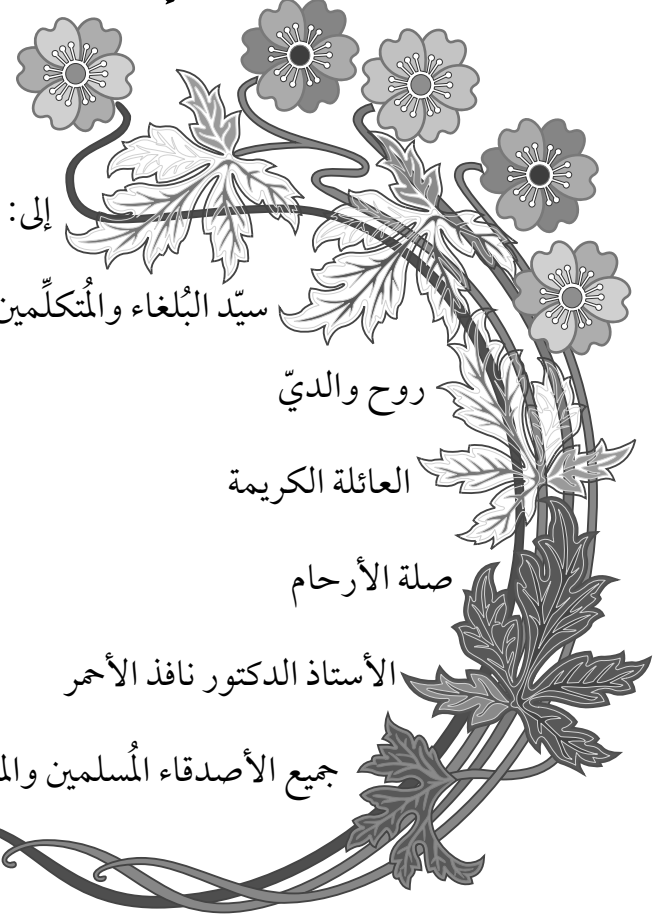 إلى:
سيّد البُلغاء والمُتكلِّمين
روح والديّ
العائلة الكريمة
صلة الأرحام
الأستاذ الدكتور نافذ الأحمر
جميع الأصدقاء المُسلمين